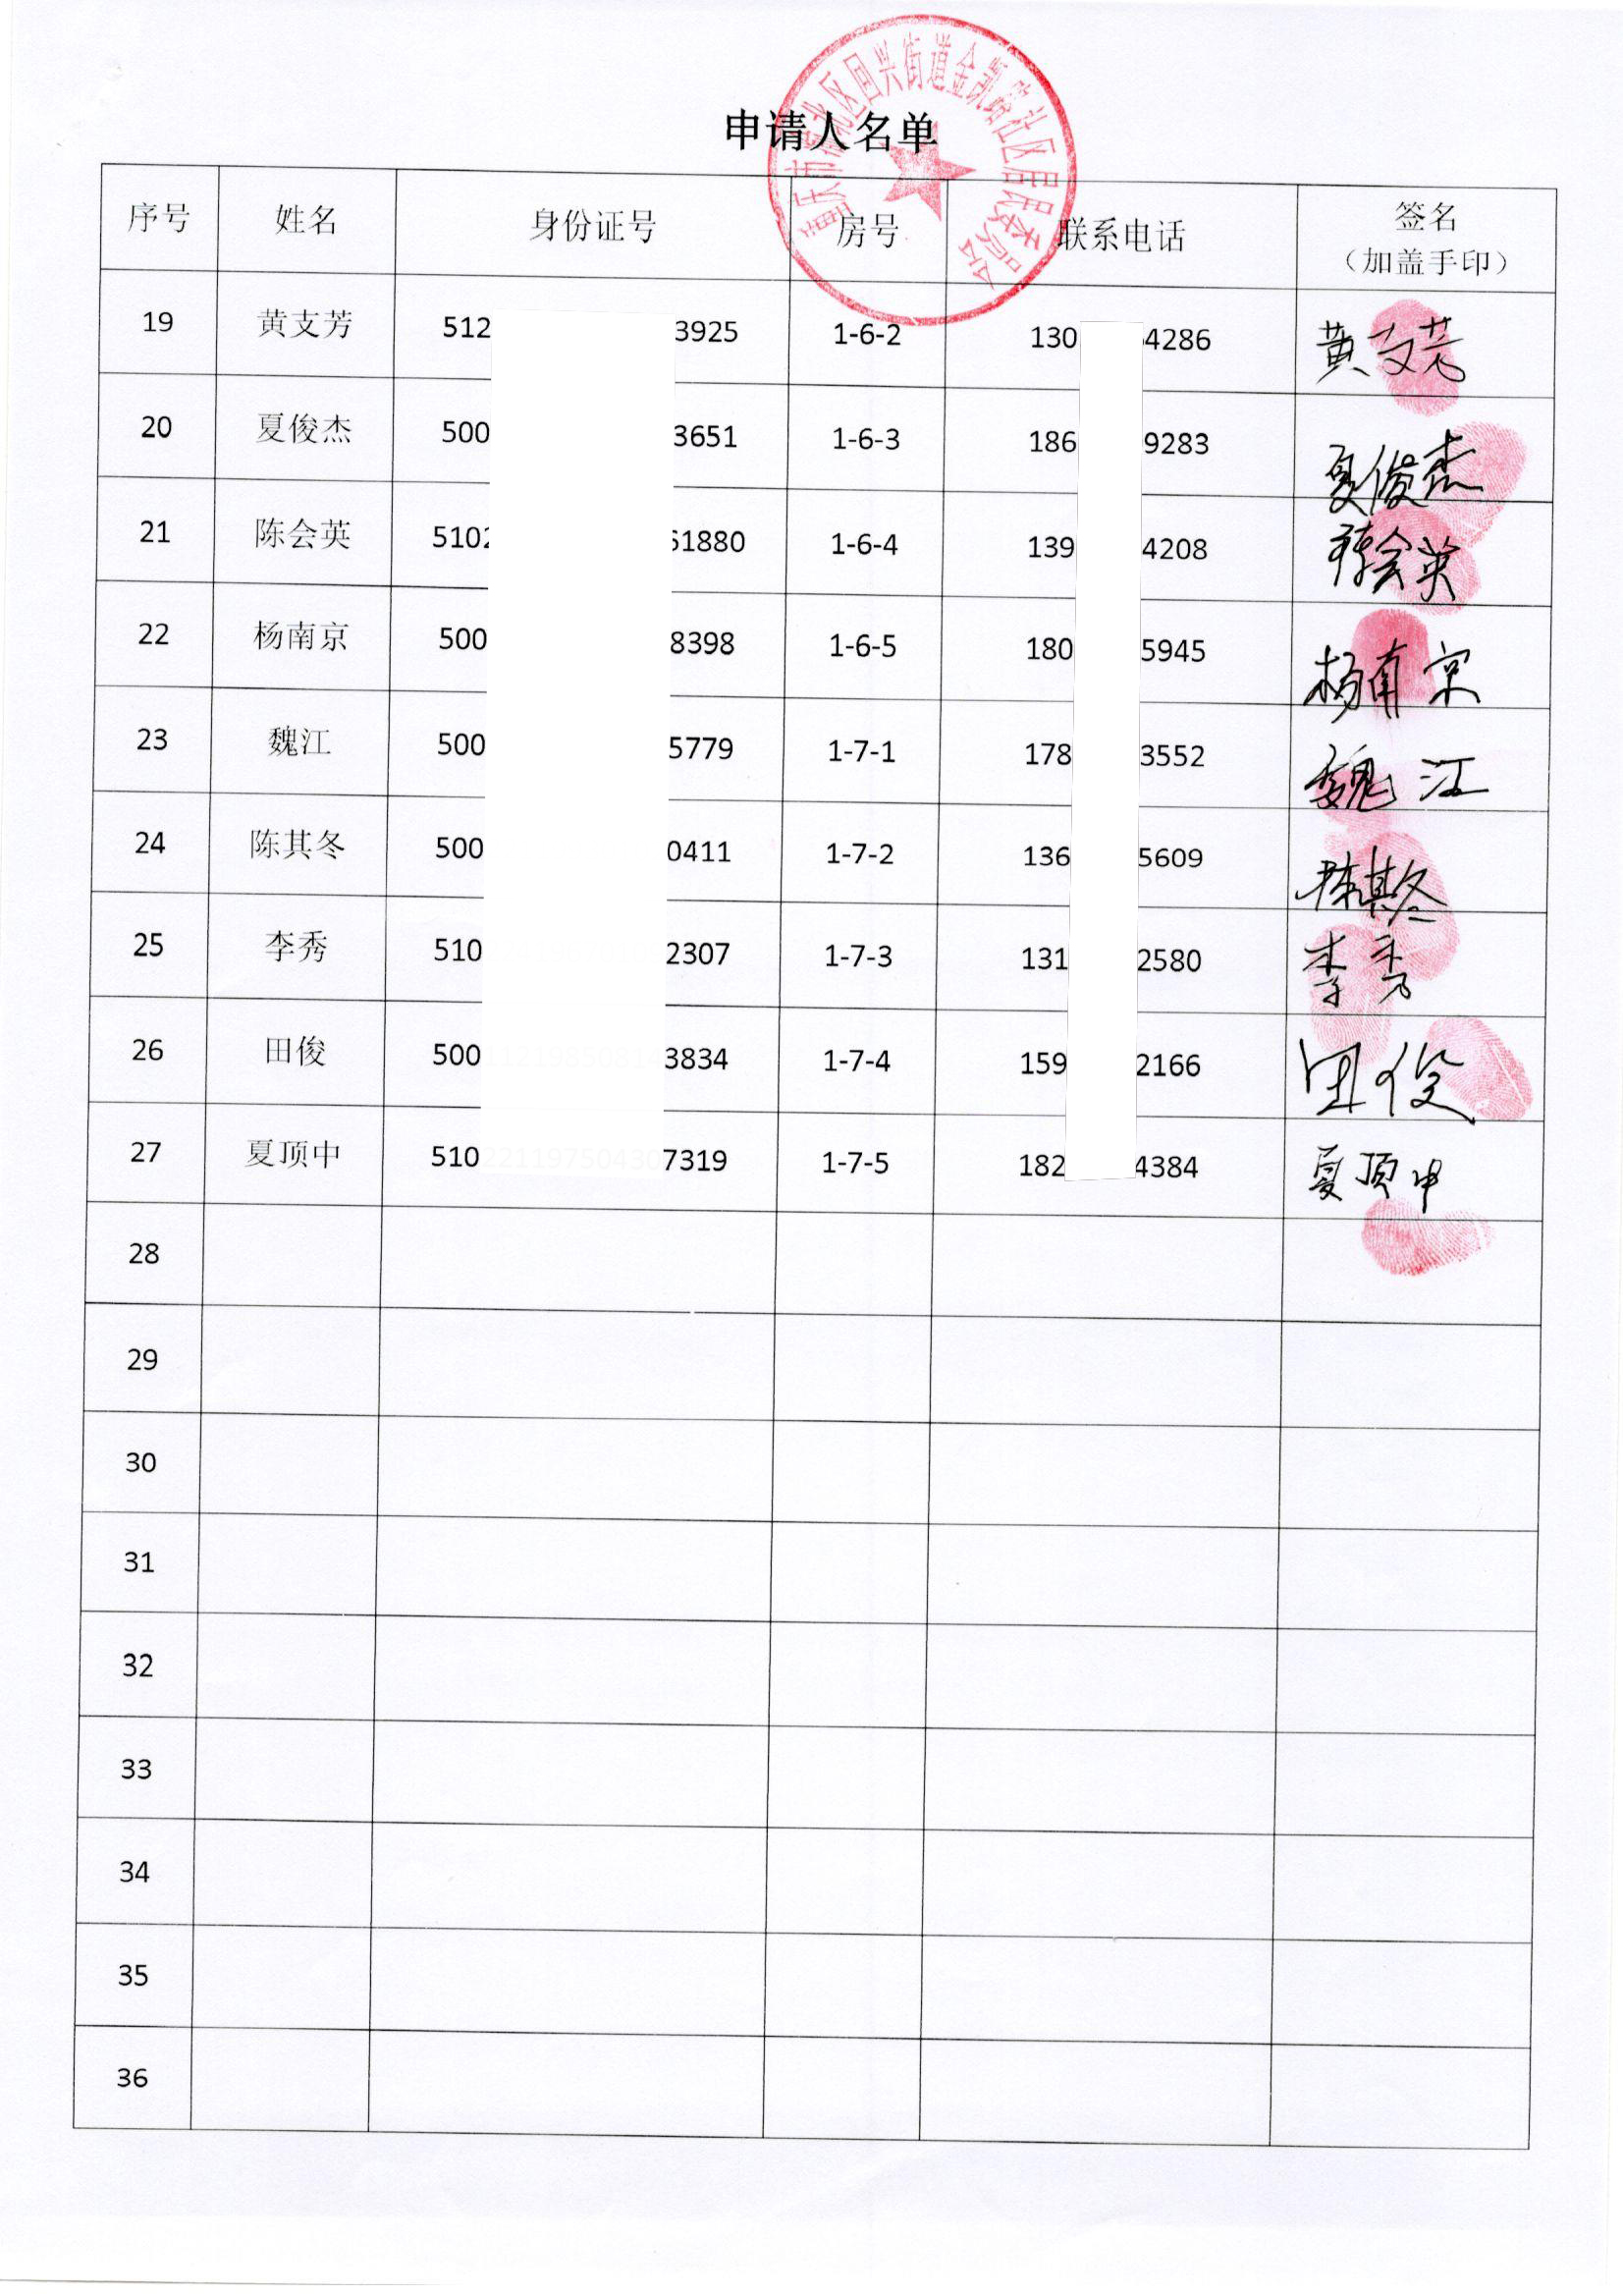 申请人名单
重庆市江北区郭兴街道金凯路社区居民委员会
序号 姓名 身份证号 房号 联系电话 签名
（加盖手印）
19 黄支芳 512 3925 1-6-2 130 4286 黄支芳
20 夏俊杰 500 3651 1-6-3 186 9283 夏俊杰
21 陈会英 5102 61880 1-6-4 139 4208 陈会英
22 杨南京 500 8398 1-6-5 180 5945 杨南京
23 魏江 500 5779 1-7-1 178 3552 魏江
24 陈其冬 500 0411 1-7-2 136 5609 陈其冬
25 李秀 510 2307 1-7-3 131 2580 李秀
26 田俊 500 3834 1-7-4 159 2166 田俊
27 夏顶中 510 7319 1-7-5 182 4384 夏顶中
28
29
30
31
32
33
34
35
36